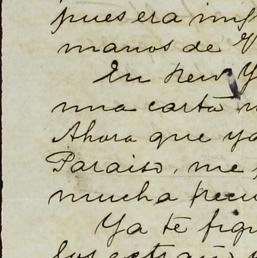 pues era im
manos de
En New Y
una carta
Ahora que ya
Paraiso, me
mucha frecu
Ya te figu
los extraño